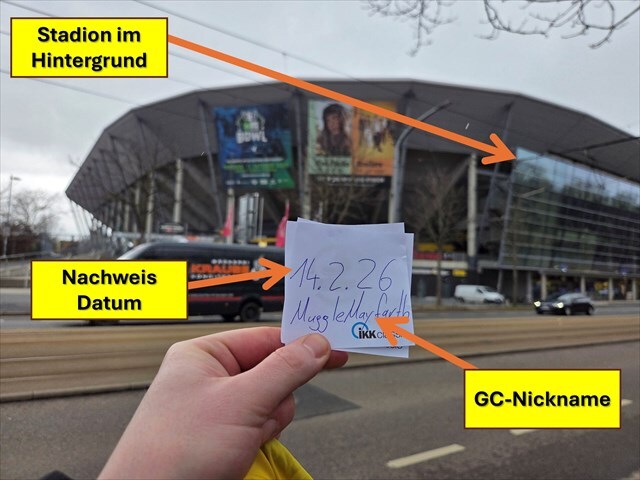 Stadion im
Hintergrund
BOWL
Nachweis
Datum
KRAUSE
14.2.26
MuggleMayfarth
iKK classic
GC-Nickname